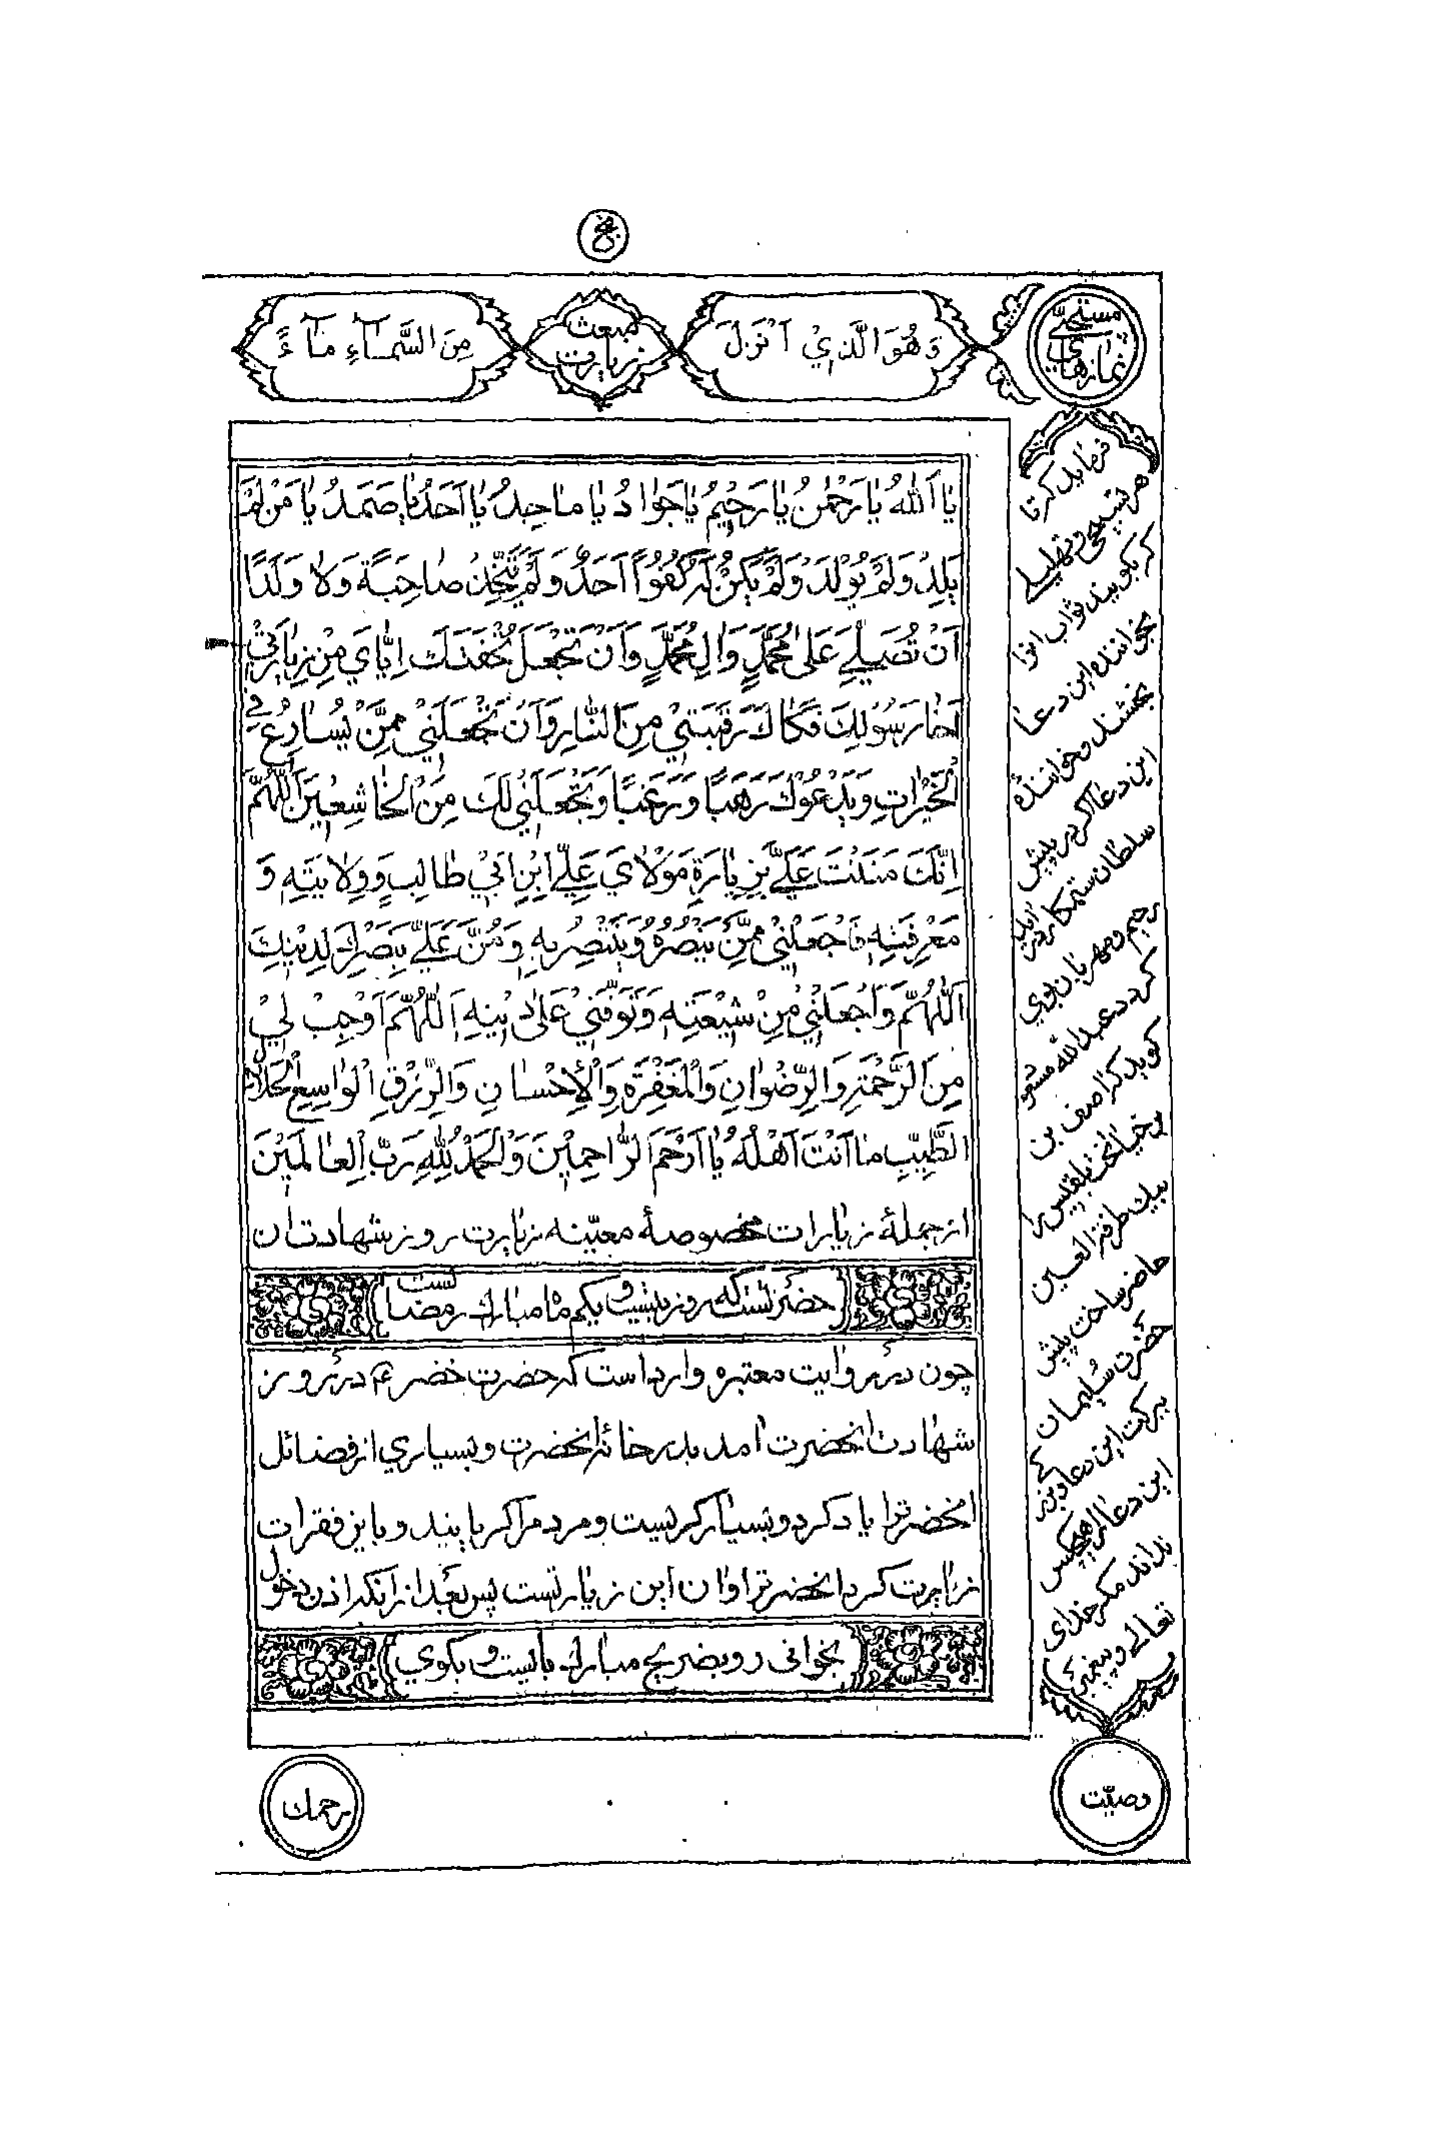 وَهُوَ الَّذِيْ اَنْزَلَ
مبعث
زیارت
مِنَ السَّمَآءِ مَآءً
مستحبّی
نمازهای
یٰا اَللّٰهُ یٰا رَحْمٰنُ یٰا رَحِیْمُ یٰا جَوٰادُ یٰا مٰاجِدُ یٰا اَحَدُ یٰا صَمَدُ یٰا مَنْ لَمْ
یَلِدْ وَلَمْ یُوْلَدْ وَلَمْ یَكُنْ لَهُ كُفُوًا اَحَدٌ وَلَمْ یَتَّخِذْ صٰاحِبَةً وَلٰا وَلَدًا
اَنْ تُصَلِّیَ عَلٰی مُحَمَّدٍ وَاٰلِ مُحَمَّدٍ وَاَنْ تَجْعَلَ تُحْفَتَكَ اِیّٰایَ مِنْ زِیٰارَتِیْ
اَخٰا رَسُوْلِكَ فَكٰاكَ رَقَبَتِیْ مِنَ النّٰارِ وَاَنْ تَجْعَلَنِیْ مِمَّنْ یُسٰارِعُ فِی
الْخَیْرٰاتِ وَیَدْعُوْكَ رَهَبًا وَرَغَبًا وَتَجْعَلَنِیْ لَكَ مِنَ الْخٰاشِعِیْنَ اَللّٰهُمَّ
اِنَّكَ مَنَنْتَ عَلَیَّ بِزِیٰارَةِ مَوْلٰایَ عَلِیِّ ابْنِ اَبِیْ طٰالِبٍ وَوِلٰایَتِهِ وَ
مَعْرِفَتِهِ فَاجْعَلْنِیْ مِمَّنْ یَنْصُرُهُ وَیَنْتَصِرُ بِهِ وَمُنَّ عَلَیَّ بِنَصْرِكَ لِدِیْنِكَ
اَللّٰهُمَّ وَاجْعَلْنِیْ مِنْ شِیْعَتِهِ وَتَوَفَّنِیْ عَلٰی دِیْنِهِ اَللّٰهُمَّ اَوْجِبْ لِیْ
مِنَ الرَّحْمَةِ وَالرِّضْوٰانِ وَالْمَغْفِرَةِ وَالْاِحْسٰانِ وَالرِّزْقِ الْوٰاسِعِ الْحَلٰالِ
الطَّیِّبِ مٰا اَنْتَ اَهْلُهُ یٰا اَرْحَمَ الرّٰاحِمِیْنَ وَالْحَمْدُ لِلّٰهِ رَبِّ الْعٰالَمِیْنَ
از جملهٔ زیارات مخصوصهٔ معیّنه زیارت روز شهادت ان
حضرتست که روز بیست و یکم ماه مبارک رمضانست
چون در روایت معتبره وارد است که حضرت خضر ع در روز
شهادت انحضرت امد بدر خانهٔ انحضرت و بسیاری از فضائل
انحضرترا یاد کرد و بسیار گریست و مردم را گریانید و باین فقرات
زیارت کرد انحضرترا و ان این زیارتست پس بعد از انکه اذن دخول
بخوانی رو بضریح مبارک بایست و بگوی
فرماید که تا
هر تسبیحی و تهلیلی
که بگویند ثواب انرا
بخوانندهٔ این دعا
بخشند و خوانندهٔ
این دعا اگر در پیش
سلطان ستمکار در اید
رحیم و مهربان بوی
گردد عبد الله مسعود
گوید که اصف بن
برخیا تخت بلقیس را
بیک طرفة العین
حاضر ساخت پیش
حضرت سلیمان
ببرکت این دعا و بزرگی
این دعا را هیچکس
نداند مگر خدای
تعالی و پیغمبر
وصیّت
رحمك